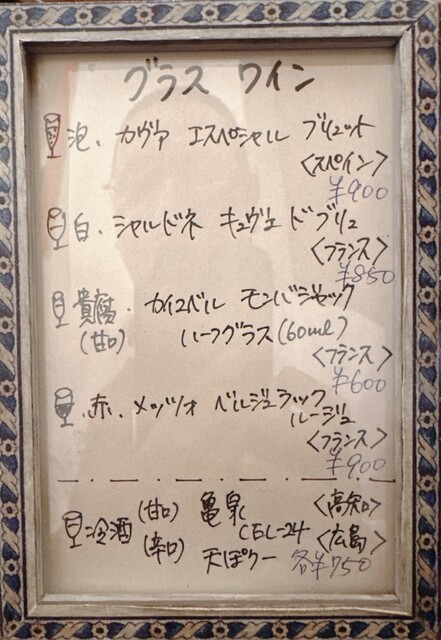 グラス ワイン
泡、カヴァ エスペシャル ブリュット
<スペイン>
¥900
白、シャルドネ キュヴェ ドブリュ
<フランス>
¥850
貴腐、カイユベル モンバジャック
(甘口) ハーフグラス(60ml)
<フランス>
¥600
赤、メッツォ ベルジュラック
ルージュ
<フランス>
¥900
冷酒 (甘口) 亀泉 <高知>
CEL-24
(辛口) 天ぽうー <広島>
各¥750